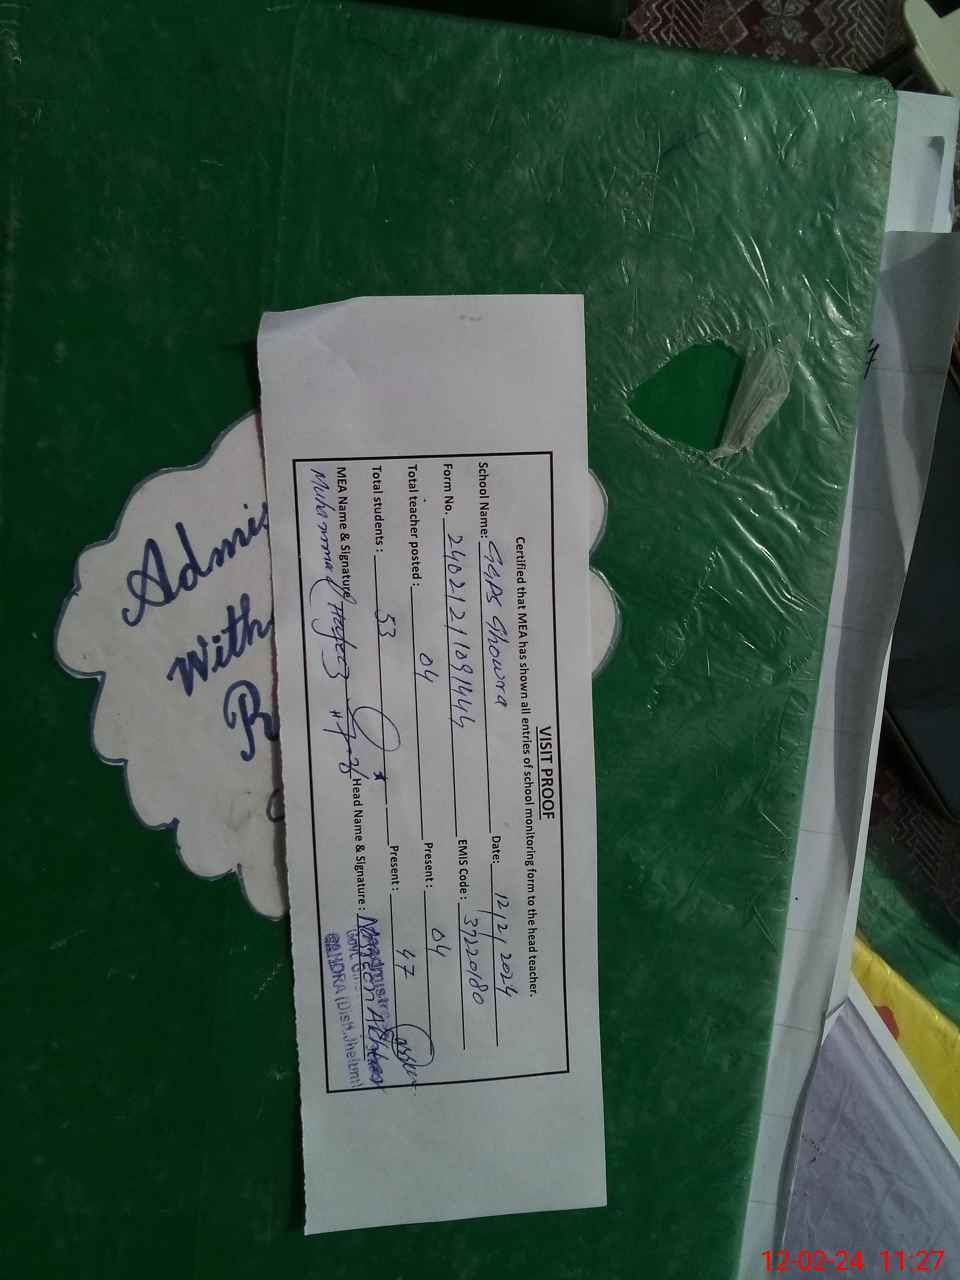 VISIT PROOF
Certified that MEA has shown all entries of school monitoring form to the head teacher.
School Name: GGPS Ghowra Date: 12/2/2024
Form No. 24021211091444 EMIS Code: 37220180
Total teacher posted: 04 Present: 04
Total students: 53 Present: 47
MEA Name & Signature Head Name & Signature:
Muhammad Hafeez
(Distt. Jhelum)
Admis
With
R
12-02-24 11:27